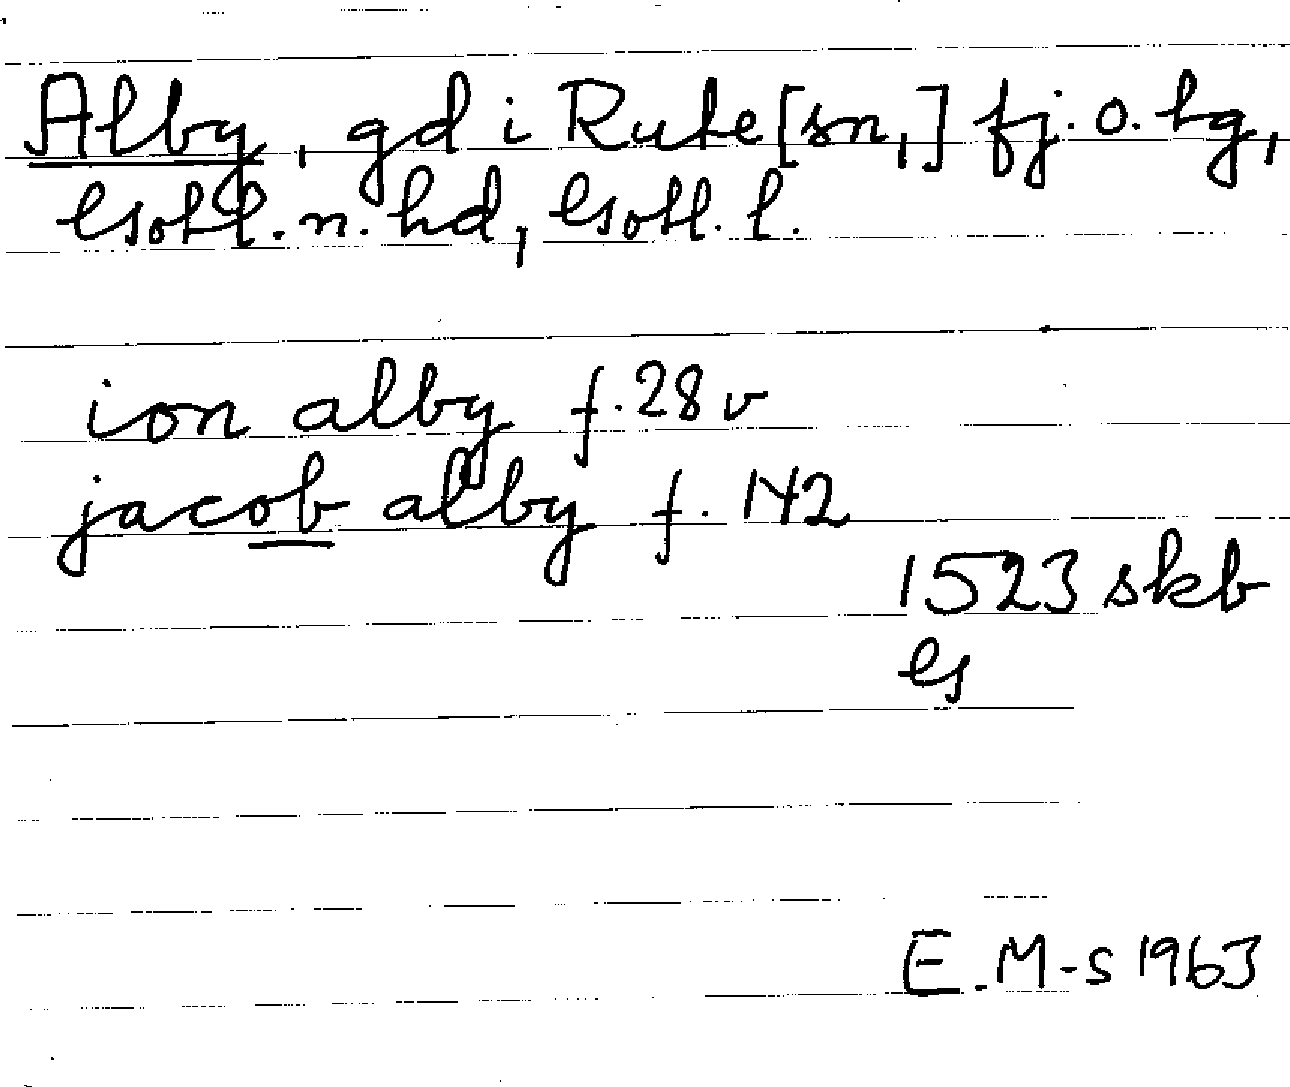 Alby, gd i Rute [sn,] fj. o. tg,
Gotl. n. hd, Gotl. l.
ion alby f. 28 v
jacob alby f. 142
1523 skb
G
E. M-s 1963